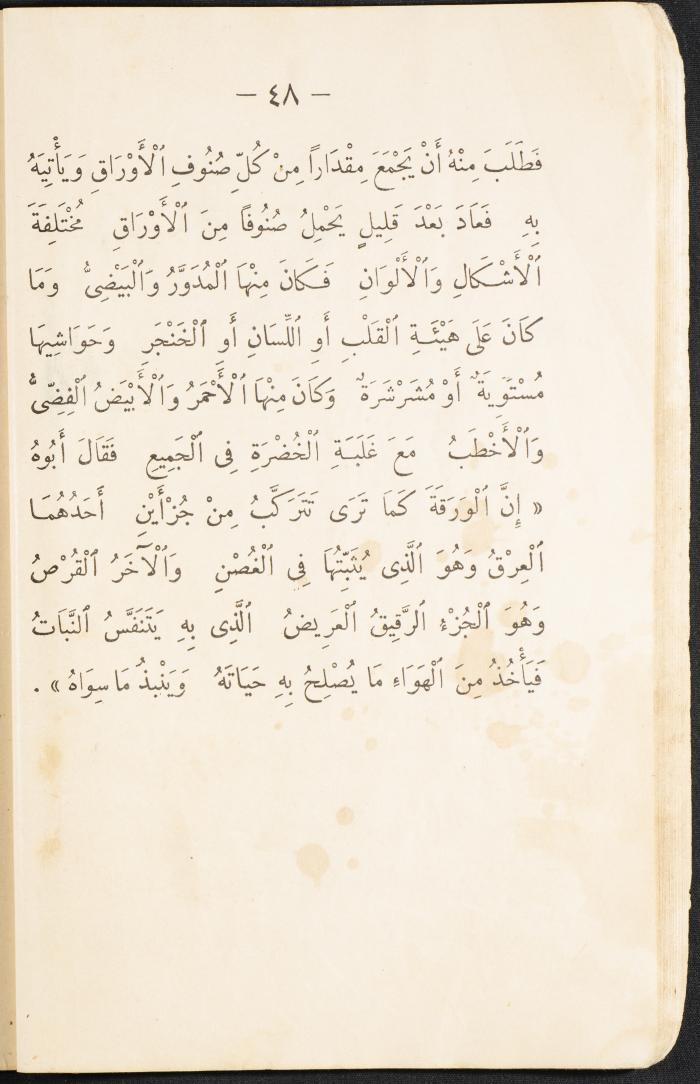 — ٤٨ —
فَطَلَبَ مِنْهُ أَنْ يَجْمَعَ مِقْدَاراً مِنْ كُلِّ صُنُوفِ ٱلْأَوْرَاقِ وَيَأْتِيَهُ
بِهِ فَعَادَ بَعْدَ قَلِيلٍ يَحْمِلُ صُنُوفًا مِنَ ٱلْأَوْرَاقِ مُخْتَلِفَةَ
ٱلْأَشْكَالِ وَٱلْأَلْوَانِ فَكَانَ مِنْهَا ٱلْمُدَوَّرُ وَٱلْبَيْضِىُّ وَمَا
كَانَ عَلَى هَيْئَةِ ٱلْقَلْبِ أَوِ ٱللِّسَانِ أَوِ ٱلْخَنْجَرِ وَحَوَاشِيهَا
مُسْتَوِيَةٌ أَوْ مُشَرْشَرَةٌ وَكَانَ مِنْهَا ٱلْأَحْمَرُ وَٱلْأَبْيَضُ ٱلْفِضِّىُّ
وَٱلْأَخْطَبُ مَعَ غَلَبَةِ ٱلْخُضْرَةِ فِى ٱلْجَمِيعِ فَقَالَ أَبُوهُ
« إِنَّ ٱلْوَرَقَةَ كَمَا تَرَى تَتَرَكَّبُ مِنْ جُزْأَيْنِ أَحَدُهُمَا
ٱلْعِرْقُ وَهُوَ ٱلَّذِى يُثَبِّتُهَا فِى ٱلْغُصْنِ وَٱلْآخَرُ ٱلْقُرْصُ
وَهُوَ ٱلْجُزْءُ ٱلرَّقِيقُ ٱلْعَرِيضُ ٱلَّذِى بِهِ يَتَنَفَّسُ ٱلنَّبَاتُ
فَيَأْخُذُ مِنَ ٱلْهَوَاءِ مَا يُصْلِحُ بِهِ حَيَاتَهُ وَيَنْبِذُ مَا سِوَاهُ » .